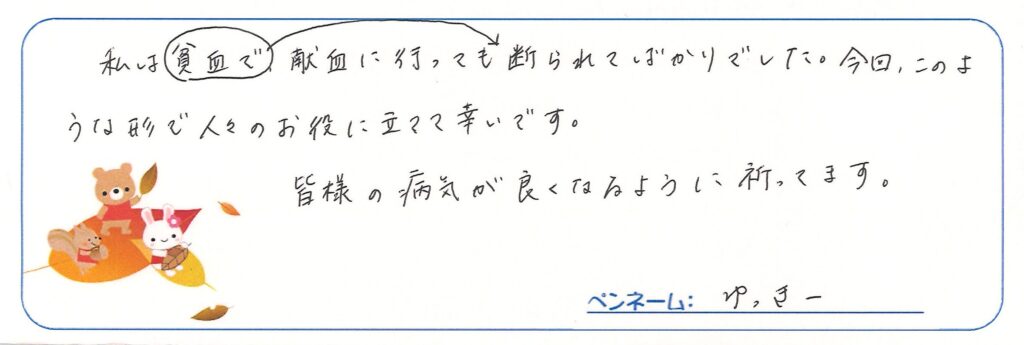 私は貧血で、献血に行っても断られてばかりでした。今回、このよ
うな形で人々のお役に立てて幸いです。
皆様の病気が良くなるように祈ってます。
ペンネーム: ゆっきー